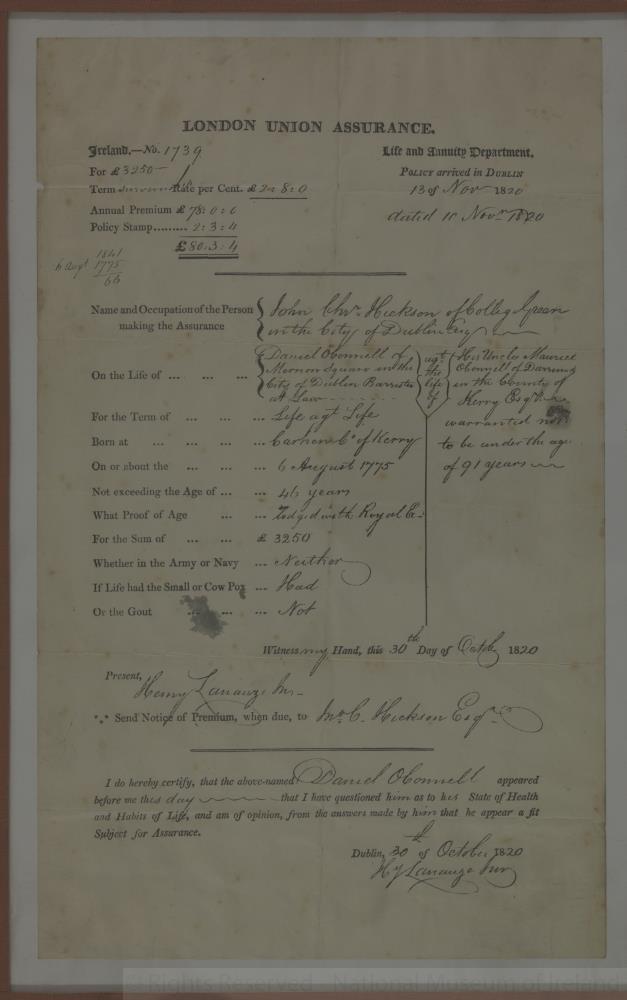 LONDON UNION ASSURANCE.
Ireland.—No. 1739
For £ 3250
Term Rate per Cent. £ 2: 8: 0
Annual Premium £ 78: 0: 0
Policy Stamp......... 2: 3: 4
£80: 3: 4
6 Augt 1821
1775
Life and Annuity Department.
POLICY arrived in DUBLIN
13 of Nov 1820
dated 10 Novr 1820
Name and Occupation of the Person making the Assurance
John Chr. Hickson of College Green
in the City of Dublin Esq
On the Life of ... ... ...
Daniel OConnell of
Merrion Square in the
City of Dublin Barrister
at Law
agt
the
life
of
His Uncle Maurice
OConnell of Darrinane
in the County of
Kerry Esqr
warranted not
to be under the age
of 91 years
For the Term of ... ... ... Life agt Life
Born at ... ... ... ... Carhen Co of Kerry
On or about the ... ... 6 August 1775
Not exceeding the Age of ... ... 46 years
What Proof of Age ... ... Lodged with Royal Ex
For the Sum of ... ... £ 3250
Whether in the Army or Navy ... Neither
If Life had the Small or Cow Pox ... Had
Or the Gout ... ... ... Not
Witness my Hand, this 30th Day of Octob 1820
Present,
Henry Lanauze Jnr
*** Send Notice of Premium, when due, to Jno. C. Hickson Esqr
I do hereby certify, that the above-named Daniel OConnell appeared
before me this day that I have questioned him as to his State of Health
and Habits of Life, and am of opinion, from the answers made by him that he appear a fit
Subject for Assurance.
Dublin, 30th of October 1820
Hy Lanauze Junr
Rights Reserved - National Museum of Ireland